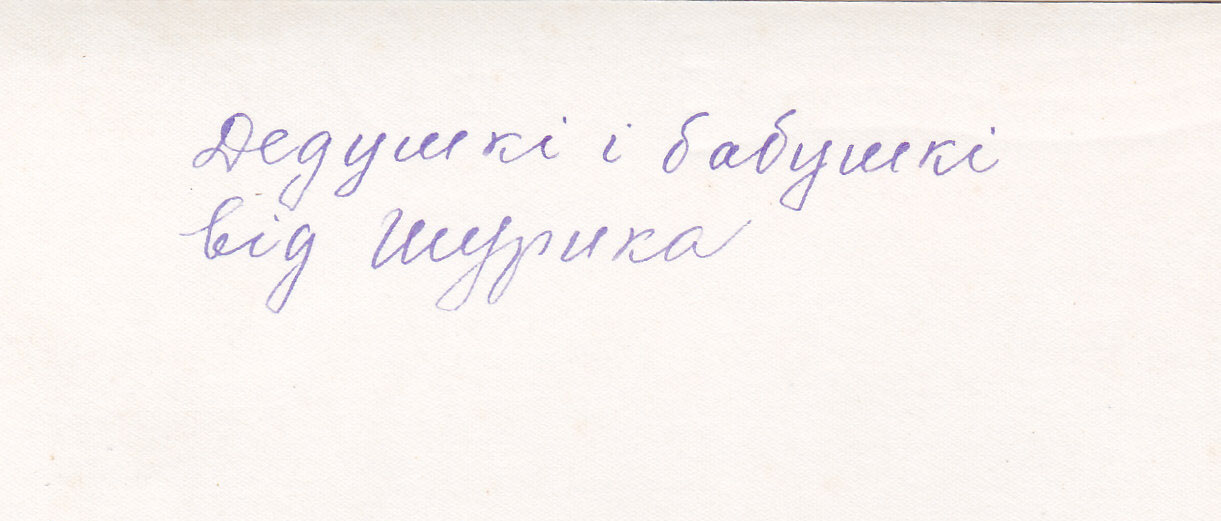 Дедушкі і бабушкі
від Шурика